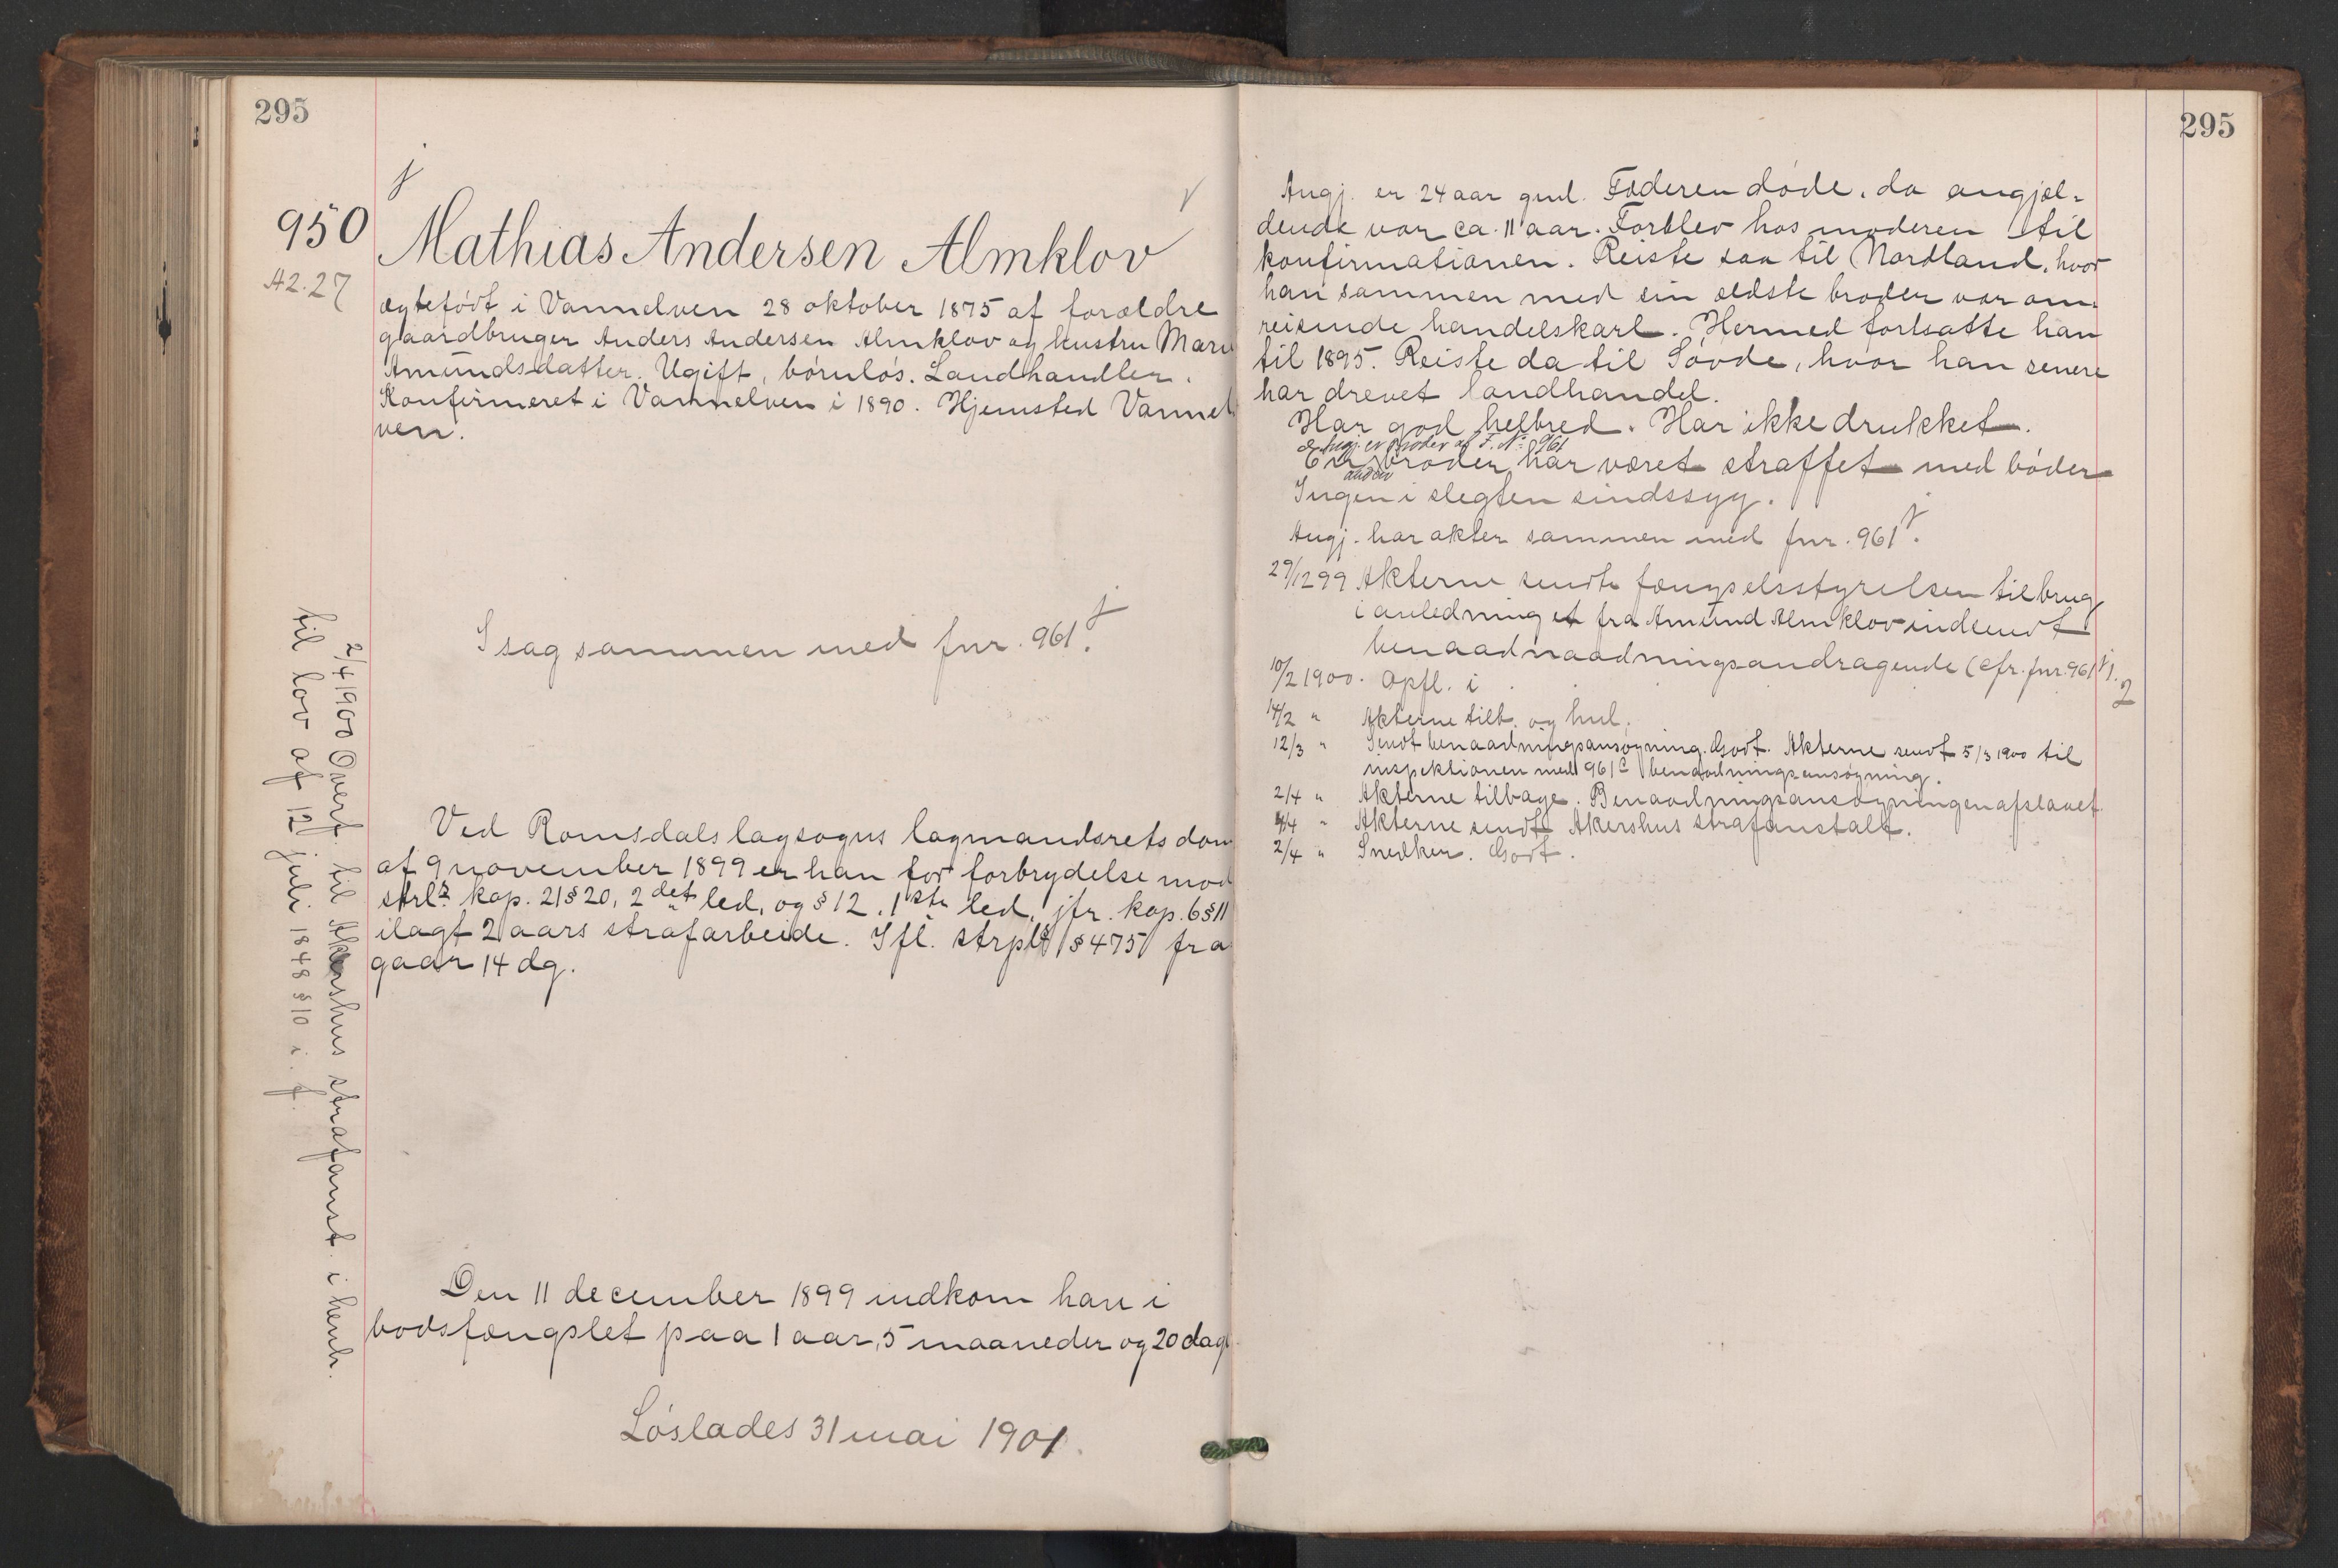 295
j
950
Mathias Andersen Almklov
A2.27
ægtefødt i Vannelven 28 oktober 1875 af forældre
gaardbruger Anders Andersen Almklov og hustru Mari
Amundsdatter. Ugift, børnløs. Landhandler.
Konfirmeret i Vannelven i 1890. Hjemsted Vannel
ven.
I sag sammen med fnr. 961 j.
Ved Romsdals lagsogns lagmandsrets dom
af 9 november 1899 er han for forbrydelse mod
strl.s kap. 21 § 20, 2det led, og § 12, 1ste led, jfr. kap. 6 § 11
ilagt 2 aars strafarbeide. Ifl. strpls § 475 fra
gaar 14 dg.
Den 11 december 1899 indkom han i
bodsfængslet paa 1 aar, 5 maaneder og 20 dag
Løslades 31 mai 1901.
2/4 1900 Overf. til Akershus strafanst. i henh.
til lov af 12 juli 1848 § 10 i. f.
295
Angj. er 24 aar gml. Faderen døde, da angjæl-
dende var ca. 11 aar. Forblev hos moderen til
konfirmationen. Reiste saa til Nordland, hvor
han sammen med sin ældste broder var om-
reisende handelskarl. Hermed fortsatte han
til 1895. Reiste da til Søvde, hvor han senere
har drevet landhandel.
Har god helbred. Har ikke drukket.
Angj. er broder af F. No 961
En broder har været straffet med bøder
anden
Ingen i slegten sindssyg.
Angj. har akter sammen med fnr. 961 j.
29/12 99 Akterne sendt fængselsstyrelsen til brug
i anledning et fra Amund Almklov indsendt
benaadnaadningsandragende (cfr. fnr. 961 j).
10/2 1900. Opfl. i 2
14/2 " Akterne tilb. og hul.
12/3 " Sendt benaadningsansøgning. Godt. Akterne sendt 5/3 1900 til
inspektionen med 961 c benaadningsansøgning.
2/4 " Akterne tilbage. Benaadningsansøgningen afslaaet.
4/4 " Akterne sendt Akershus strafanstalt.
2/4 " Snedker. Godt.